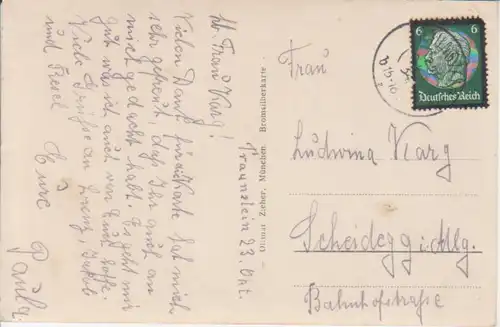 Traunstein 23. Okt.
Lb. Frau Karg!
Vielen Dank für die Karte hat mich
sehr gefreut, daß Ihr auch an
mich gedacht habt. Es geht mir
gut was ich auch von Euch hoffe.
Viele Grüße an Lenz, Jakob
und Resel
Eure
Paula
Ottmar Zieher, München. Bromsilberkarte.
6 6
Deutsches Reich
Frau
Ludwina Karg
Scheidegg i. Allg.
Bahnhofstraße